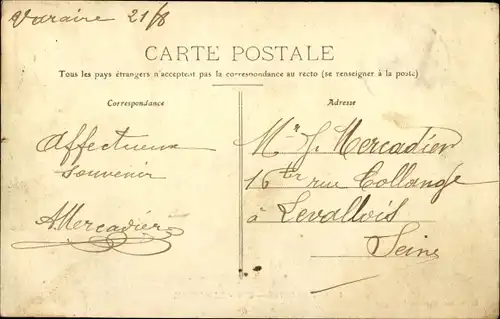 Varaire 21/8
CARTE POSTALE
Tous les pays étrangers n'acceptent pas la correspondance au recto (se renseigner à la poste)
Correspondance
Affectueux
souvenir
A. Mercadier
Adresse
Mr J. Mercadier
16 ter rue Collange
à Levallois
Seine